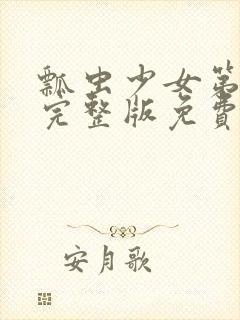 瓢虫少女第
完整版免費
安月歌